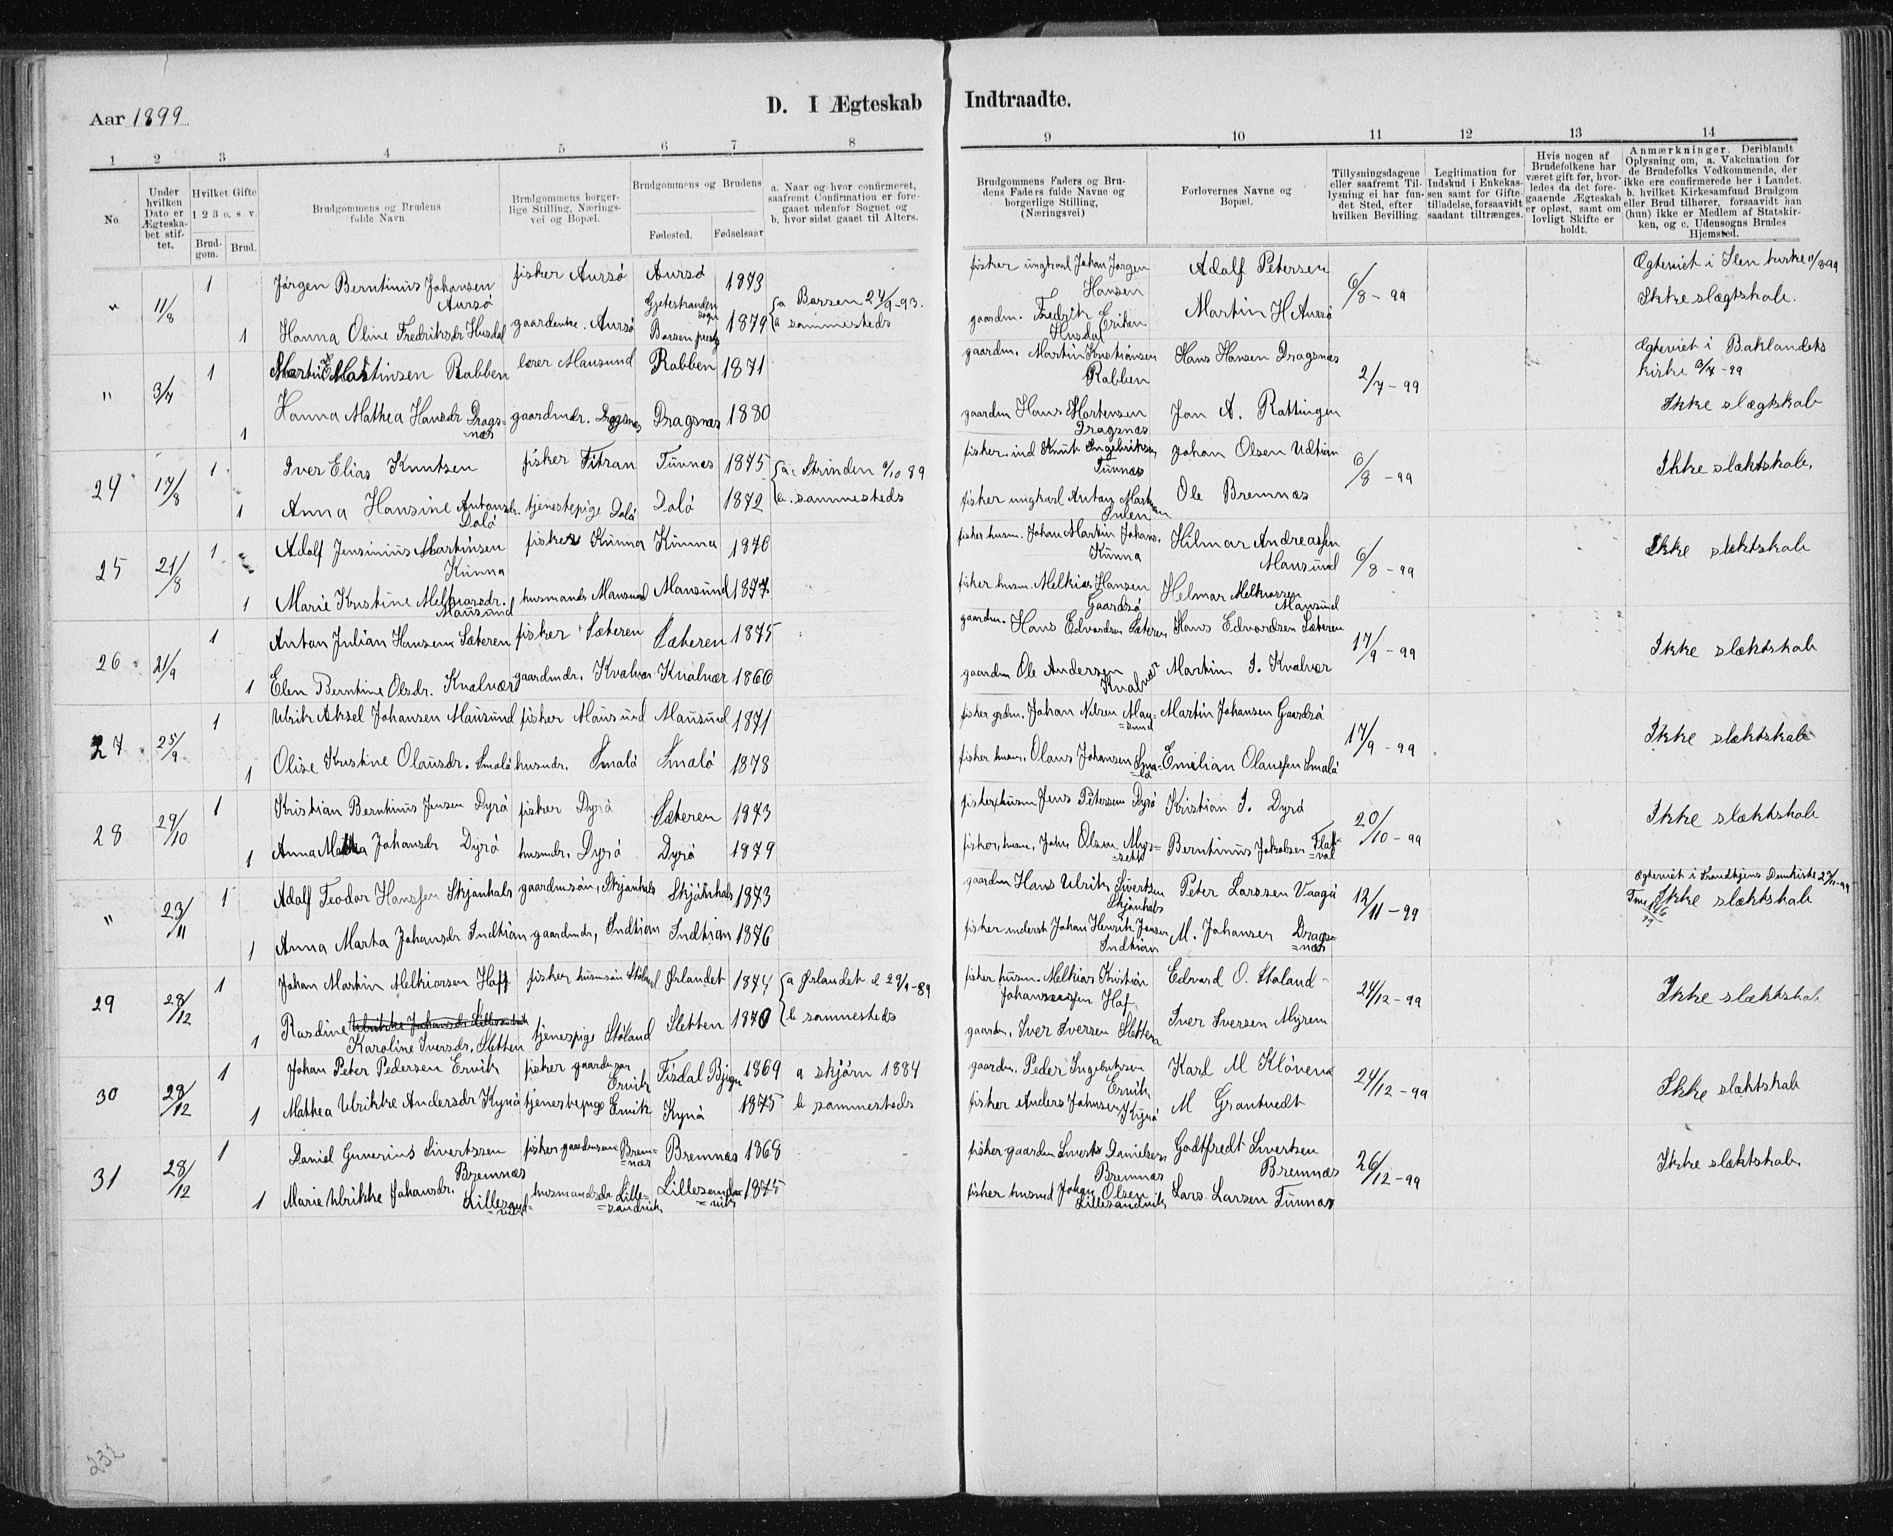 Aar 1899
D. I Ægteskab Indtraadte.
1 2 3 4 5 6 7 8 9 10 11 12 13 14
No.
Under hvilken Dato er Ægteskabet stiftet.
Hvilket Gifte
1 2 3 o. s. v.
Brudgom. Brud.
Brudgommens og Brudens fulde Navn
Brudgommens borgerlige Stilling, Næringsvei og Bopæl.
Brudgommens og Brudens
Fødested. Fødselsaar
a. Naar og hvor confirmeret, saafremt Confirmation er foregaaet udenfor Sognet og b. hvor sidst gaaet til Alters.
Brudgommens Faders og Brudens Faders fulde Navne og borgerlige Stilling, (Næringsvei)
Forlovernes Navne og Bopæl.
Tillysningsdagene eller saafremt Tillysning ei har fundet Sted, efter hvilken Bevilling.
Legitimation for Indskud i Enkekassen samt for Giftetilladelse, forsaavidt saadant tiltrænges.
Hvis nogen af Brudefolkene har været gift før, hvorledes da det foregaaende Ægteskab er opløst, samt om lovligt Skifte er holdt.
Anmærkninger. Deriblandt Oplysning om, a. Vakcination for de Brudefolks Vedkommende, der ikke ere confirmerede her i Landet. b. hvilket Kirkesamfund Brudgom eller Brud tilhører, forsaavidt han (hun) ikke er Medlem af Statskirken, og c. Udensogns Brudes Hjemsted.
" 11/8 1 Jørgen Berntinus Johansen Aursø fisker Aursø Aursø 1873 fisker ungkarl Johan Jørgen Hansen Adolf Petersen 6/8-99 Ægteviet i Ilen kirke 11/8 99
1 Hanna Oline Fredriksdr Husdal gaardenke. Aursø Gjetestranden sogn Børsen 1879 a Børsen 24/9-93. sammesteds gaardm. Fredrik Eriksen Husdal Martin H Aursø Ikke slægtskab.
" 3/7 1 Martin Martinsen Rabben lærer Mausund Rabben 1871 gaardm. Martin Kristiansen Rabben Hans Hansen Dragsnæs 2/7-99 Ægteviet i Baklandets kirke 3/7-99
1 Hanna Mathea Hansdr Dragsnæs gaardmdr. Dragsnæs Dragsnæs 1880 gaardm Hans Mortensen Dragsnæs Jon A. Rottingen Ikke slægtskab
24 17/8 1 Iver Elias Knutsen fisker Titran Tunnæs 1875 a. Strinden 6/10 89 fisker ind Knut Ingebriktsen Tunnæs Johan Olsen Udtian 6/8-99 Ikke slæktskab.
1 Anna Hansine Antonsdr. Dolø tjenestepige Dolø Dolø 1872 sammesteds fisker ungkarl Anton Ole Bremnæs
25 21/8 1 Adolf Jensinius Martinsen Kunna fisker Kunna Kunna 1876 fisker husm. Johan Martin Johans. Kunna Hilmar Andreassen Mausund 6/8-99 Ikke slæktskab
1 Marie Kristine Melkiorsdr. Mausund husmandsd. Mausund Mausund 1877 fisker husm. Melkior Hansen Gaardsø Helmar Melkiorsen Mausund
26 21/9 1 Anton Julian Hansen Sæteren fisker Sæteren Sæteren 1875 gaardm. Hans Edvardsen Sæteren Hans Edvardsen Sæteren 17/9-99 Ikke slæktskab
1 Elen Berntine Olsdr. Kvalvær gaardmdr. Kvalvær Kvalvær 1866 gaardm Ole Andersen Kvalvær Martin I. Kvalvær
27 25/9 1 Ulrik Aksel Johansen Mausund fisker Mausund Mausund 1871 fisker grdm. Johan Nilsen Mausund Martin Johansen Gaardsø 17/9-99 Ikke slæktskab
1 Olise Kristine Olausdr. Smalø husmdr. Smalø Smalø 1878 fisker husm. Olaus Johansen Smalø Emelian Olaussen Smalø
28 29/10 1 Kristian Berntinus Jensen Dyrø fisker Dyrø Sæteren 1873 fisker husm Jens Petersen Dyrø Kristian I. Dyrø 20/10-99 Ikke slæktskab
1 Anna Johansdr Dyrø husmdr. Dyrø Dyrø 1879 fisker, husm. John Olsen Berntinus Jakobsen Flatval
" 23/11 1 Adolf Teodor Hanssen Skjønhals gaardmsøn, Skjønhals Skjønhals 1873 gaardm Hans Ulrik Sivertsen Skjønhals Peter Larssen Vaagø 12/11-99 Ægteviet i Trondhjems Domkirke 23/11-99 Ikke slæktskab
1 Anna Marta Johansdr Indtian gaardmdr, Indtian Indtian 1876 fisker inderst Johan Henrik Jensen Indtian M. Johansen Dragsnæs
29 28/12 1 Johan Martin Melkiorsen Haff fisker husmsøn Støland Ørlandet 1874 a Ørlandet d 29/9-89 fisker husm. Melkior Kristian Johannessen Haf Edvard O. Støland 24/12-99 Ikke slæktskab
1 Rasdine Karoline Iversdr. Sletten tjenespige Støland Sletten 1870 b sammesteds gaardm. Iver Iversen Sletten Iver Iversen Myren
30 28/12 1 Johan Peter Pedersen Ervik fisker gaardmsøn Ervik Tisdal Bjugn 1869 a skjørn 1884 gaardm. Peder Ingebriktsen Ervik Karl M Kløven 24/12-99 Ikke slæktskab
1 Mathea Ulrikke Andersdr Kynø tjenestepige Ervik Kynø 1875 b sammesteds fisker Anders Johnsen Kynø M Grøntvedt
31 28/12 1 Daniel Gunerius Sivertssen Bremnæs fisker gaardmsøn Bremnæs Bremnæs 1868 fisker gaardm Sivert Danielsen Bremnæs Godtfredt Sivertsen Bremnæs 26/12-99 Ikke slæktskab.
1 Marie Ulrikke Johansdr. Lillesandvik husmandsdr Lillesandvik Lillesandvik 1875 fisker husmd Johan Olsen Lillesandvik Lars Larsen Tunnæs
232